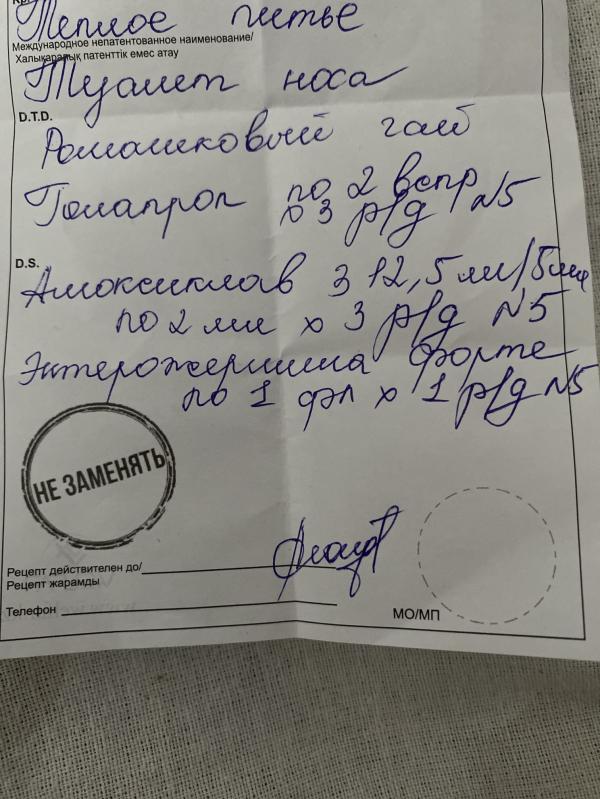 Теплое питье
Международное непатентованное наименование/
Халықаралық патенттік емес атау
Туалет носа
D.T.D.
Ромашковый чай
по 2 вспр
х 3 р/д N5
D.S.
Амоксиклав 312,5 мг/5мл
по 2 мл х 3 р/д N5
Энтерожермина форте
по 1 фл х 1 р/д N5
НЕ ЗАМЕНЯТЬ
Рецепт действителен до/
Рецепт жарамды
Телефон
МО/МП